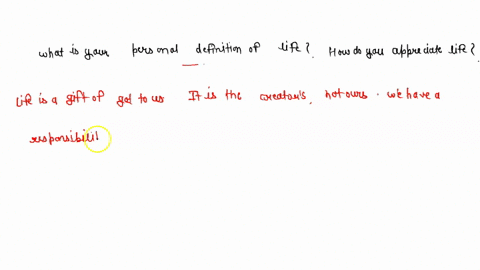 what is your personal definition of life? How do you appreciate life?
Life is a gift of god to us It is the creator's, not ours. we have a
responsibilit